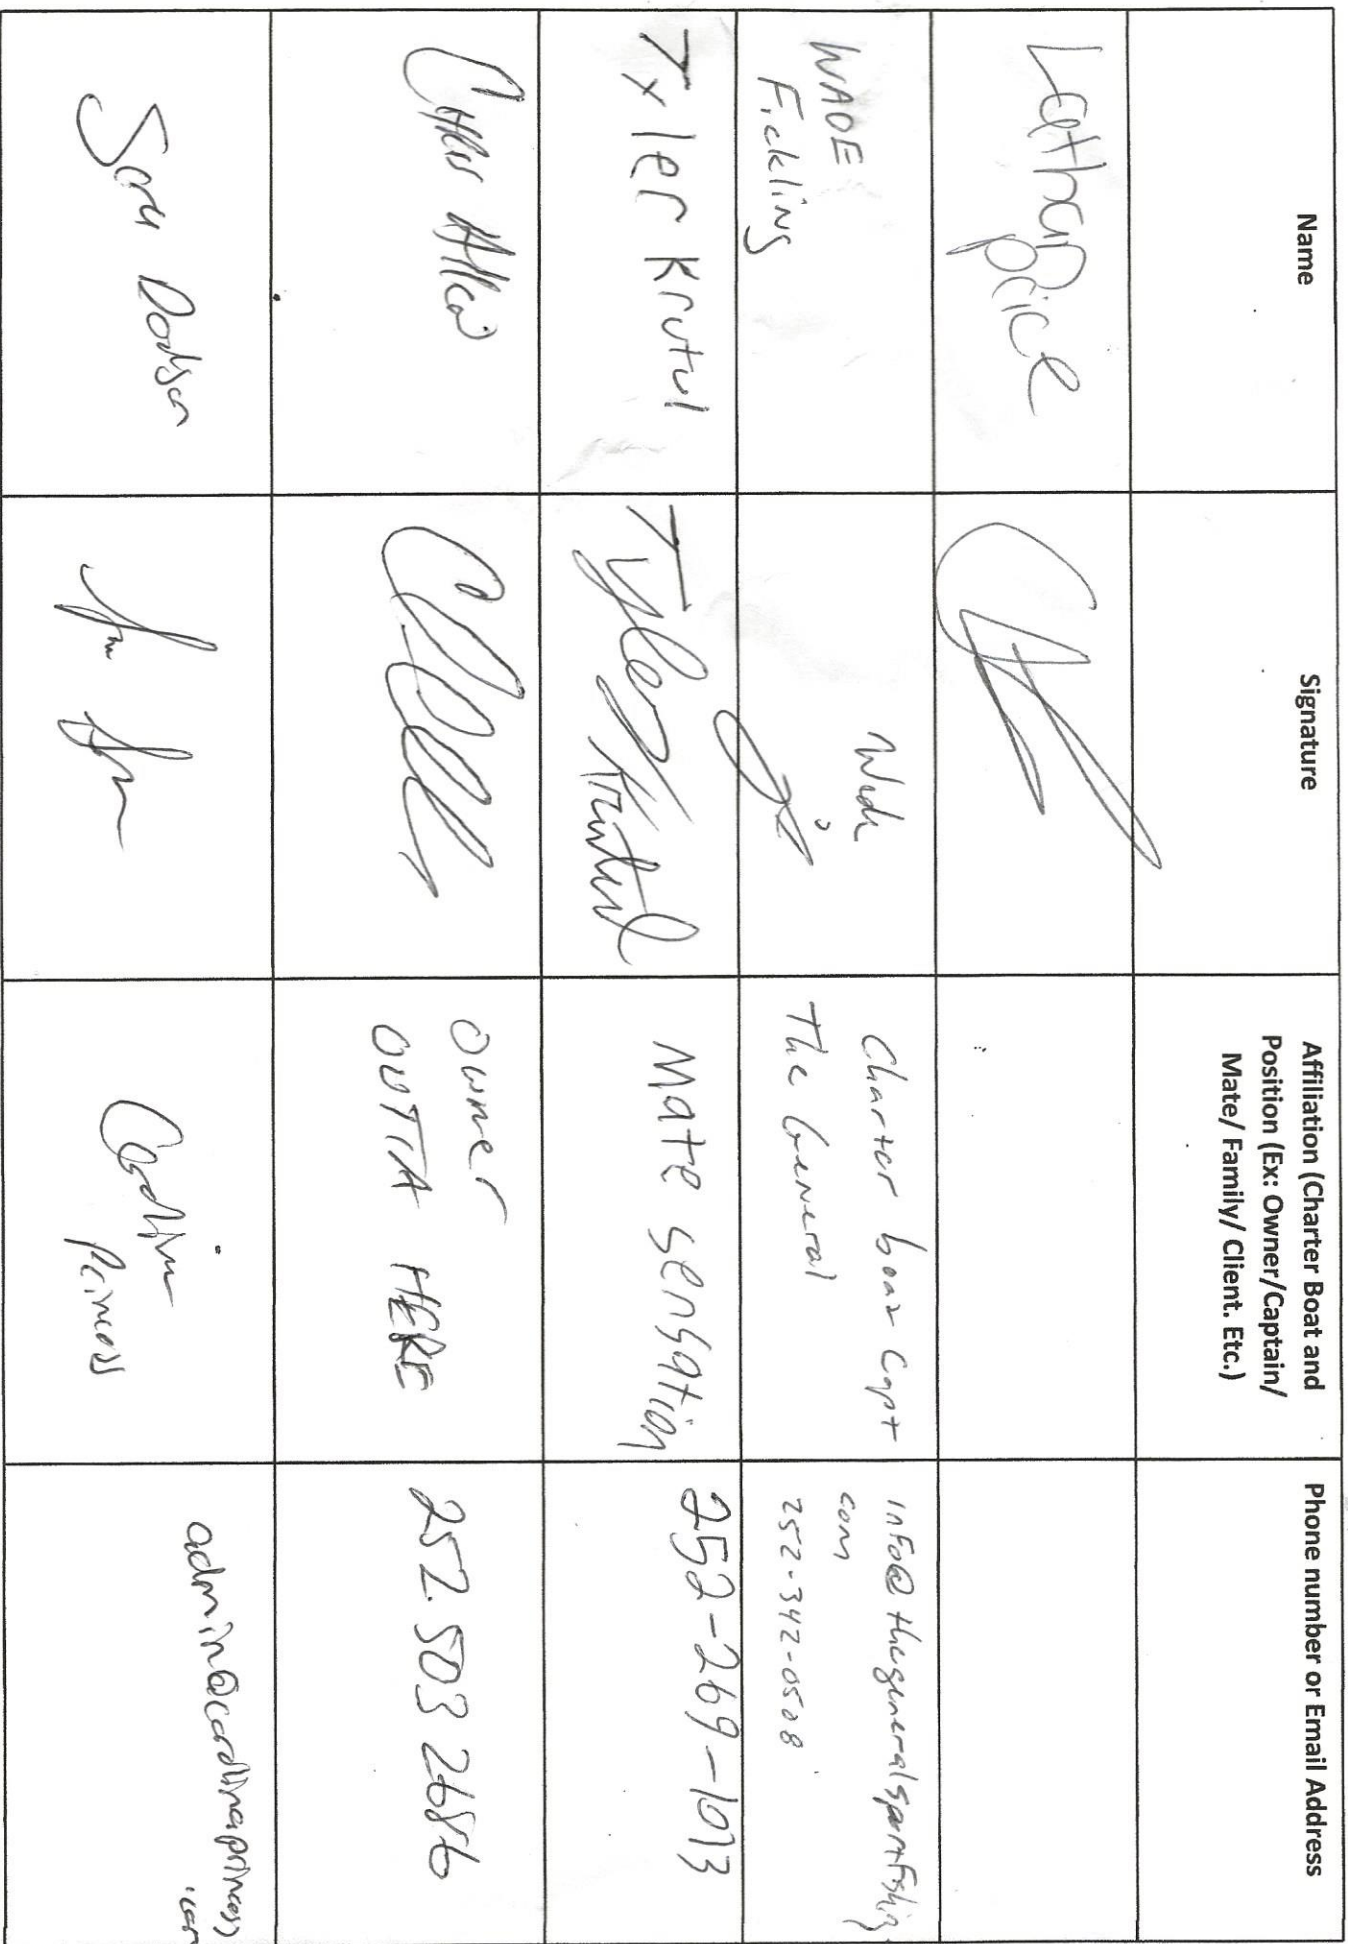 Name
Signature
Affiliation (Charter Boat and
Position (Ex: Owner/Captain/
Mate/ Family/ Client. Etc.)
Phone number or Email Address
Lathan
Price
WADE
Fickling
Wade
Charter boat Capt
The General
info@thegeneralsportfishing.
com
252-342-0508
Tyler Krutul
Tyler Krutul
Mate Sensation
252-269-1013
Chris Allen
Owner
OUTTA HERE
252.503 2686
Dodson
Carolina
Princess
admin@carolinaprincess
.com